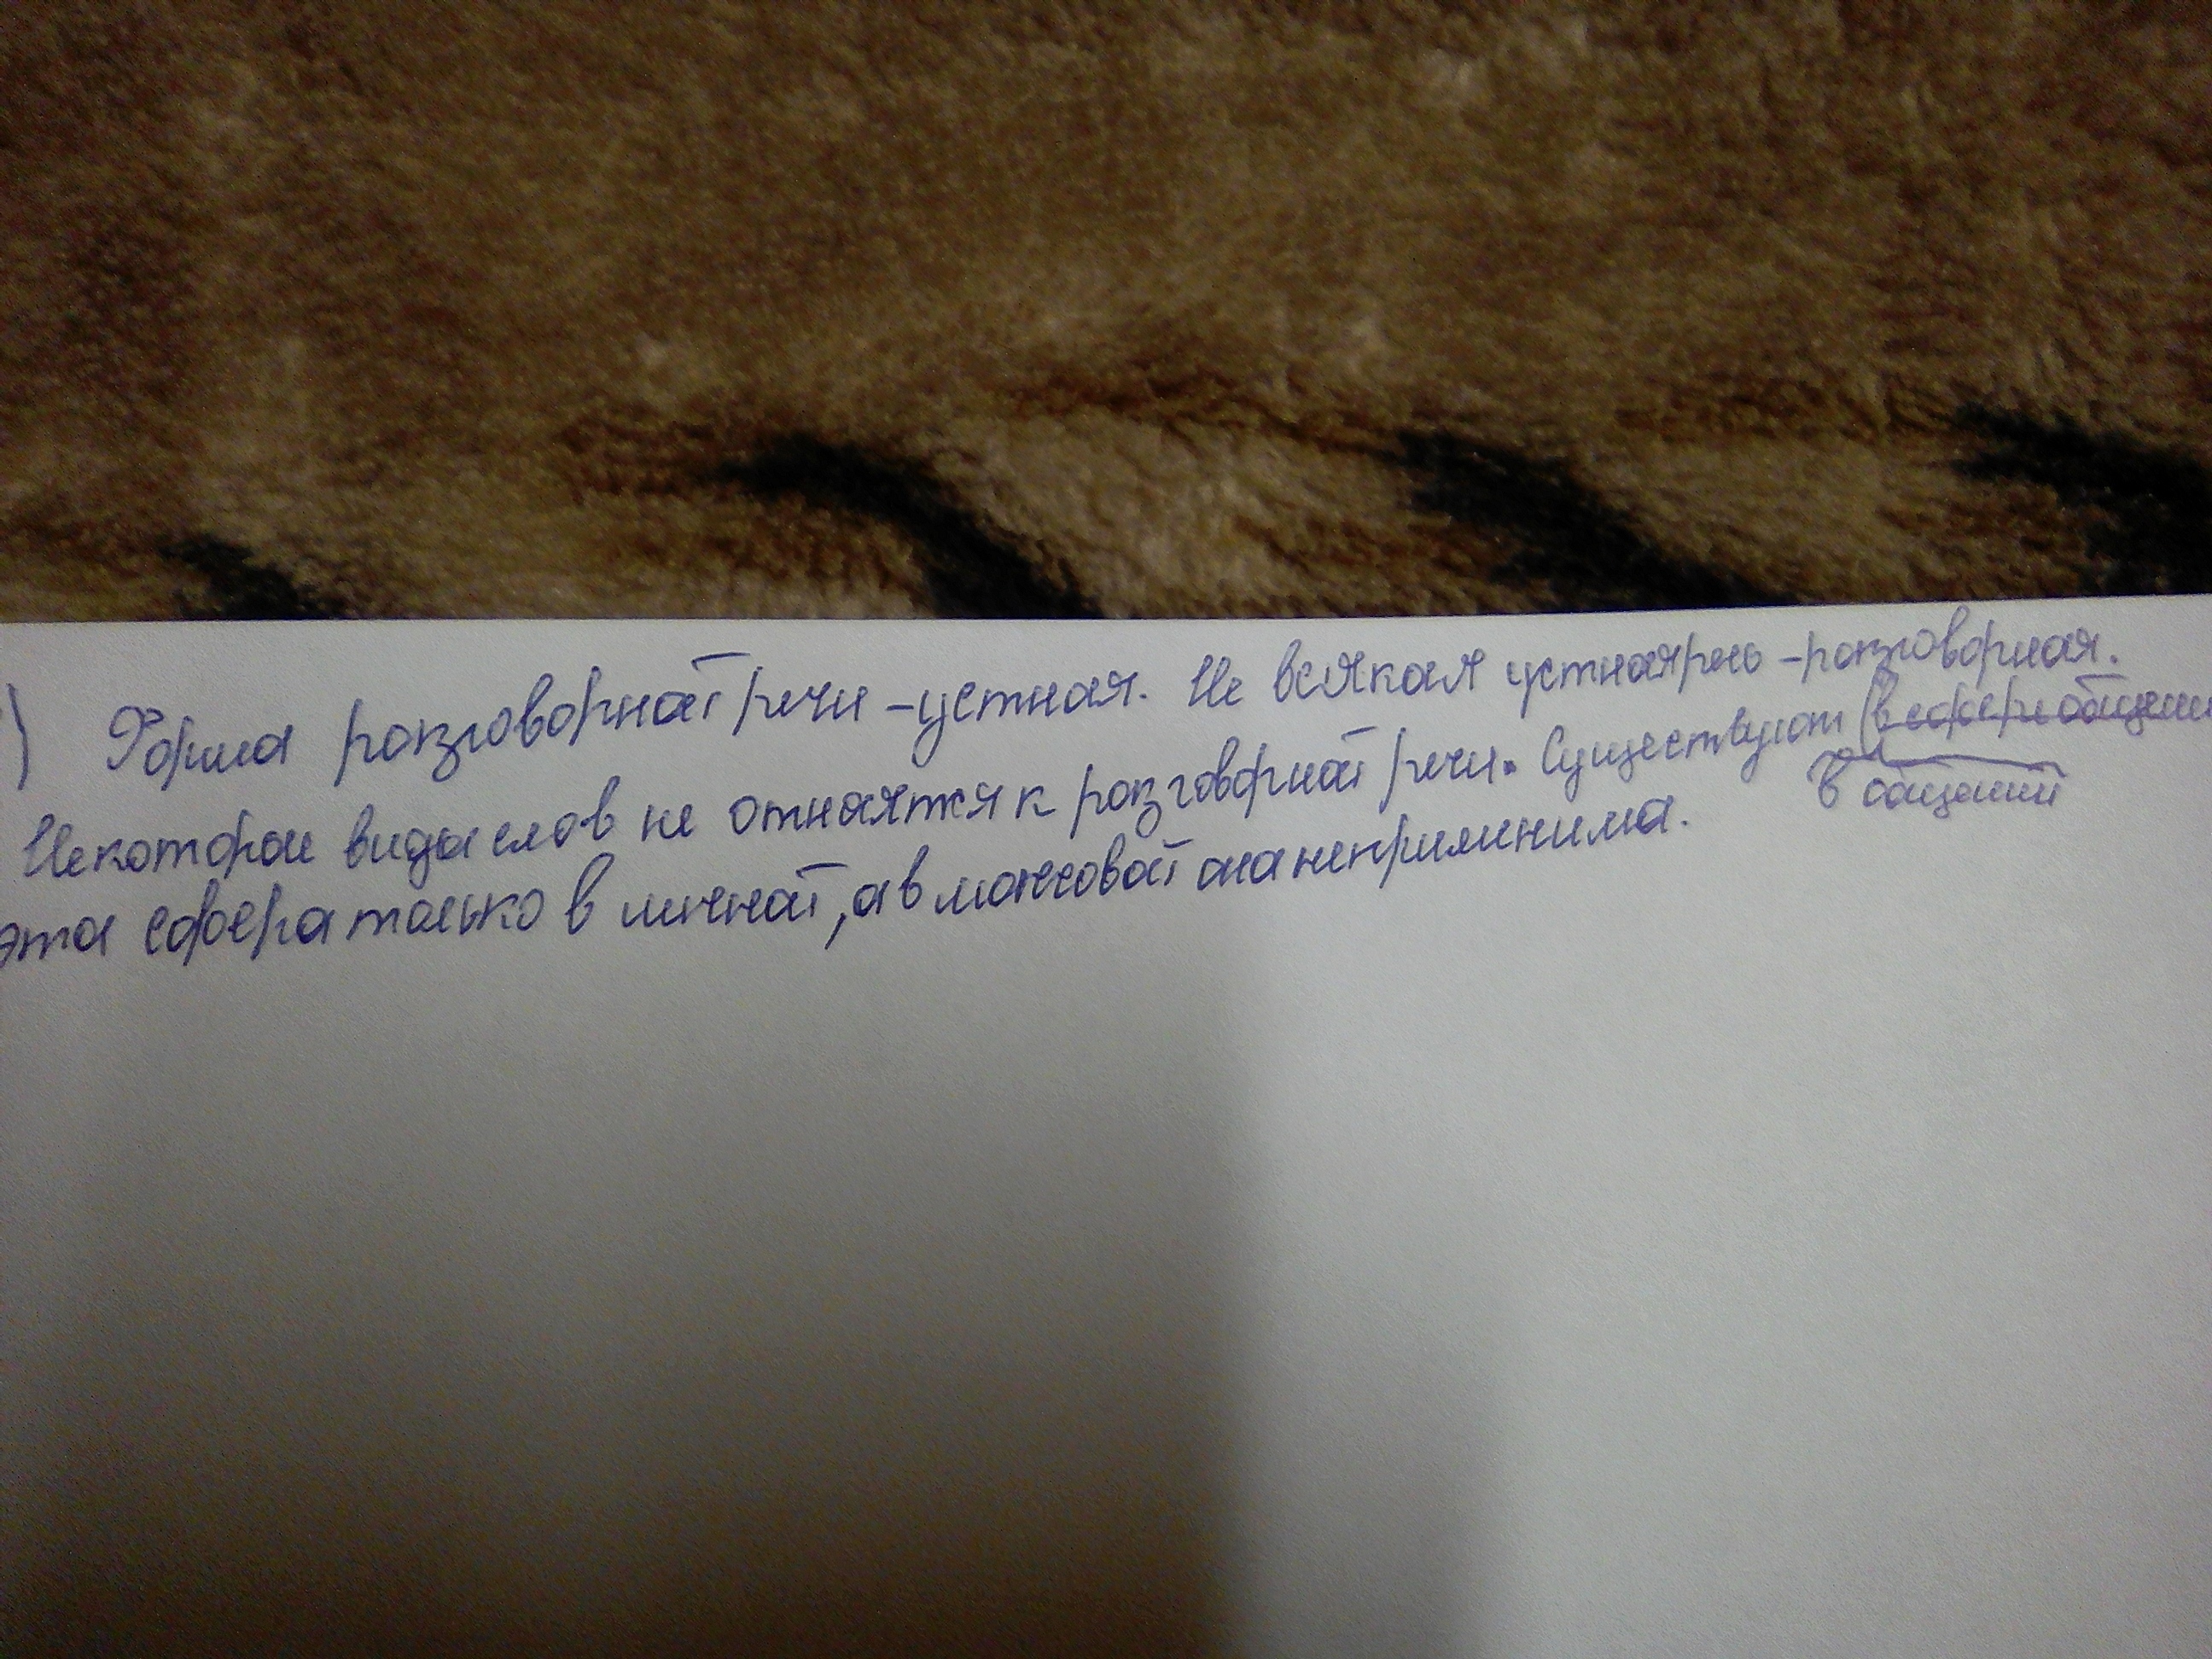 ) Форма разговорной речи - устная. Не всякая устная речь - разговорная.
Некоторые виды слов не относятся к разговорной речи. Существуют (в сфере общении
в общении
эта сфера только в личной, а в массовой она неприменима.